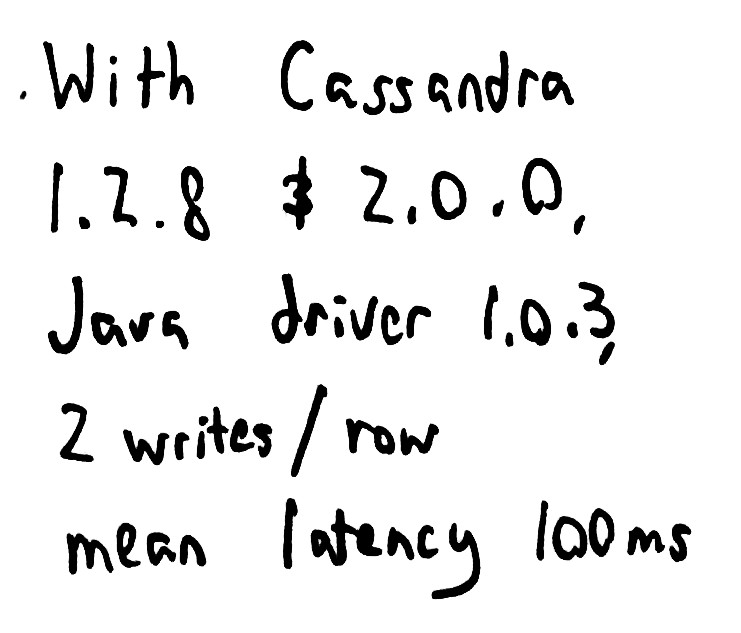 . With Cassandra
1.2.8 & 2.0.0,
Java driver 1.0.3,
2 writes/row
mean latency 100ms